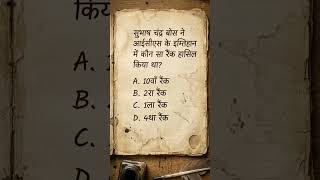 सुभाष चंद्र बोस ने
आईसीएस के इम्तिहान
में कौन सा रैंक हासिल
किया था?
A. 10वाँ रैंक
B. 2रा रैंक
C. 1ला रैंक
D. 4था रैंक